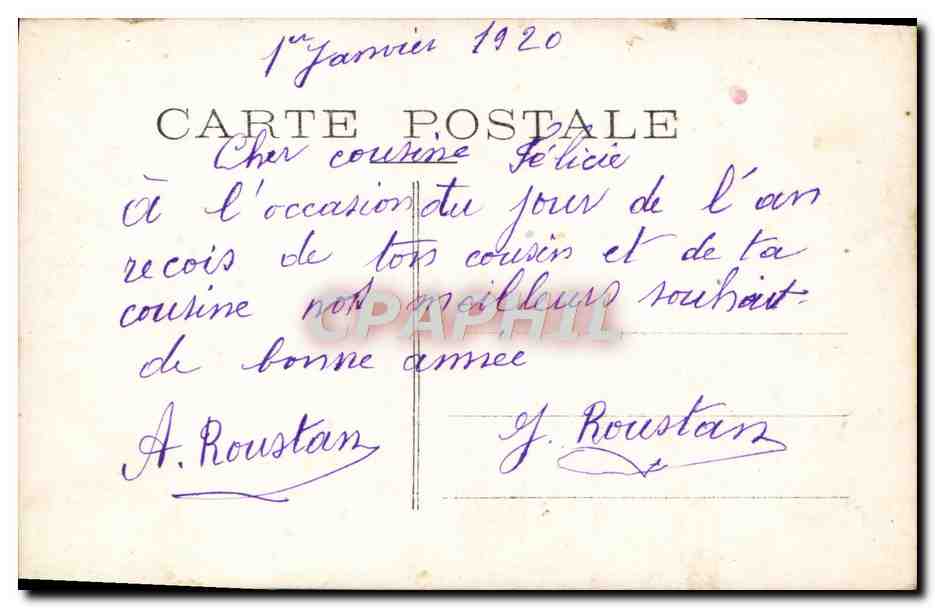 1er Janvier 1920
CARTE POSTALE
Cher cousine Félicie
à l'occasion du jour de l'an
recois de ton cousin et de ta
cousine nos meilleurs souhait
CPAPHIL
de bonne annee
A. Roustan J. Roustan